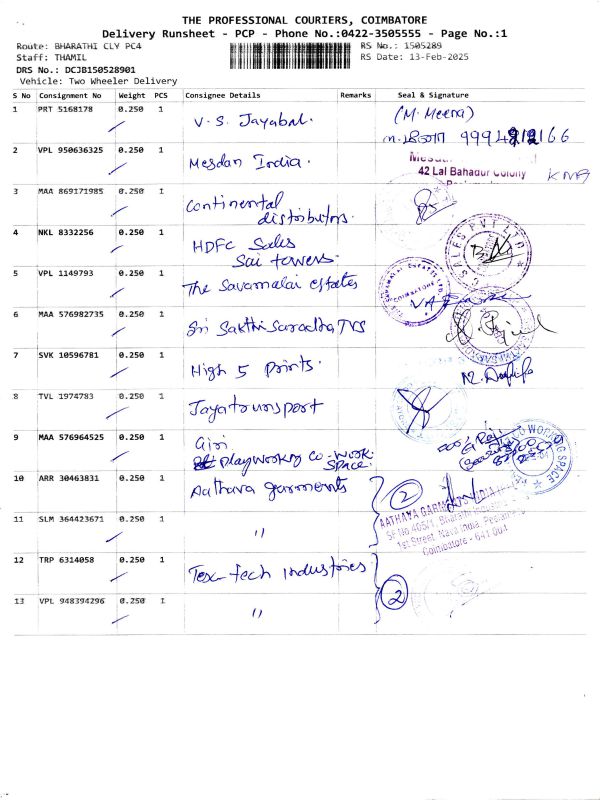 THE PROFESSIONAL COURIERS, COIMBATORE
Delivery Runsheet - PCP - Phone No.:0422-3505555 - Page No.:1
Route: BHARATHI CLY PC4
RS No.: 1505289
Staff: THAMIL
RS Date: 13-Feb-2025
DRS No.: DCJB150528901
Vehicle: Two Wheeler Delivery
S No Consignment No Weight PCS Consignee Details Remarks Seal & Signature
1 PRT 5168178 0.250 1 V. S. Jayabal. (M. Meena)
2 VPL 950636325 0.250 1 Mesdan India.
42 Lal Bahadur Colony
3 MAA 869171985 0.250 1 Continental
distributors.
4 NKL 8332256 0.250 1 HDFC Sales
Sai towers.
5 VPL 1149793 0.250 1 The Savamalai estates
6 MAA 576982735 0.250 1 Sri Sakthi Saradha TVS
7 SVK 10596781 0.250 1 High 5 Points.
8 TVL 1974783 0.250 1 Jayatransport
9 MAA 576964525 0.250 1 Giri
playworking co-work
space.
WORKING SPACE
10 ARR 30463831 0.250 1 Aathava garments 2
11 SLM 364423671 0.250 1 "
AATHAYA GARMENTS INDIA
SF No 405/1, Bharathi
1st Street, Nava India, Peelamedu
Coimbatore - 641 004
12 TRP 6314058 0.250 1 Tex-tech industories
13 VPL 948394296 0.250 1 " 2